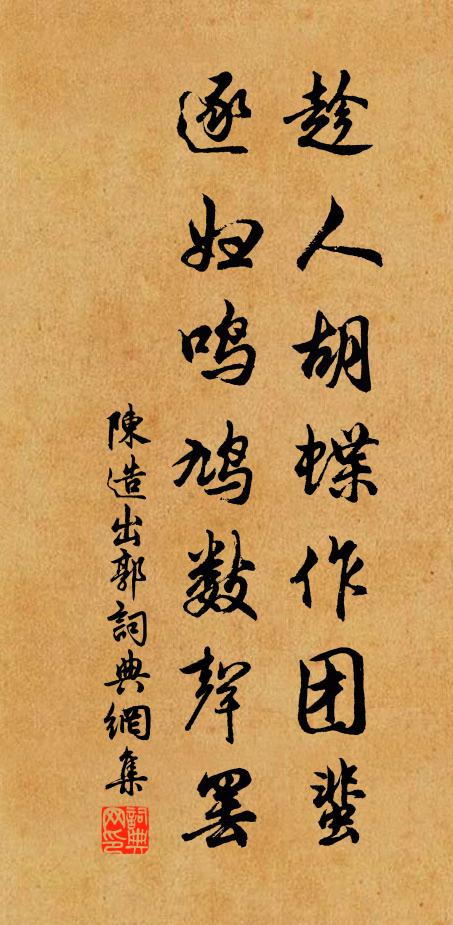 趁人胡蝶作团蜚
逐妇鸣鸠数声罢
陳造出郭詞典網集
詞典网印